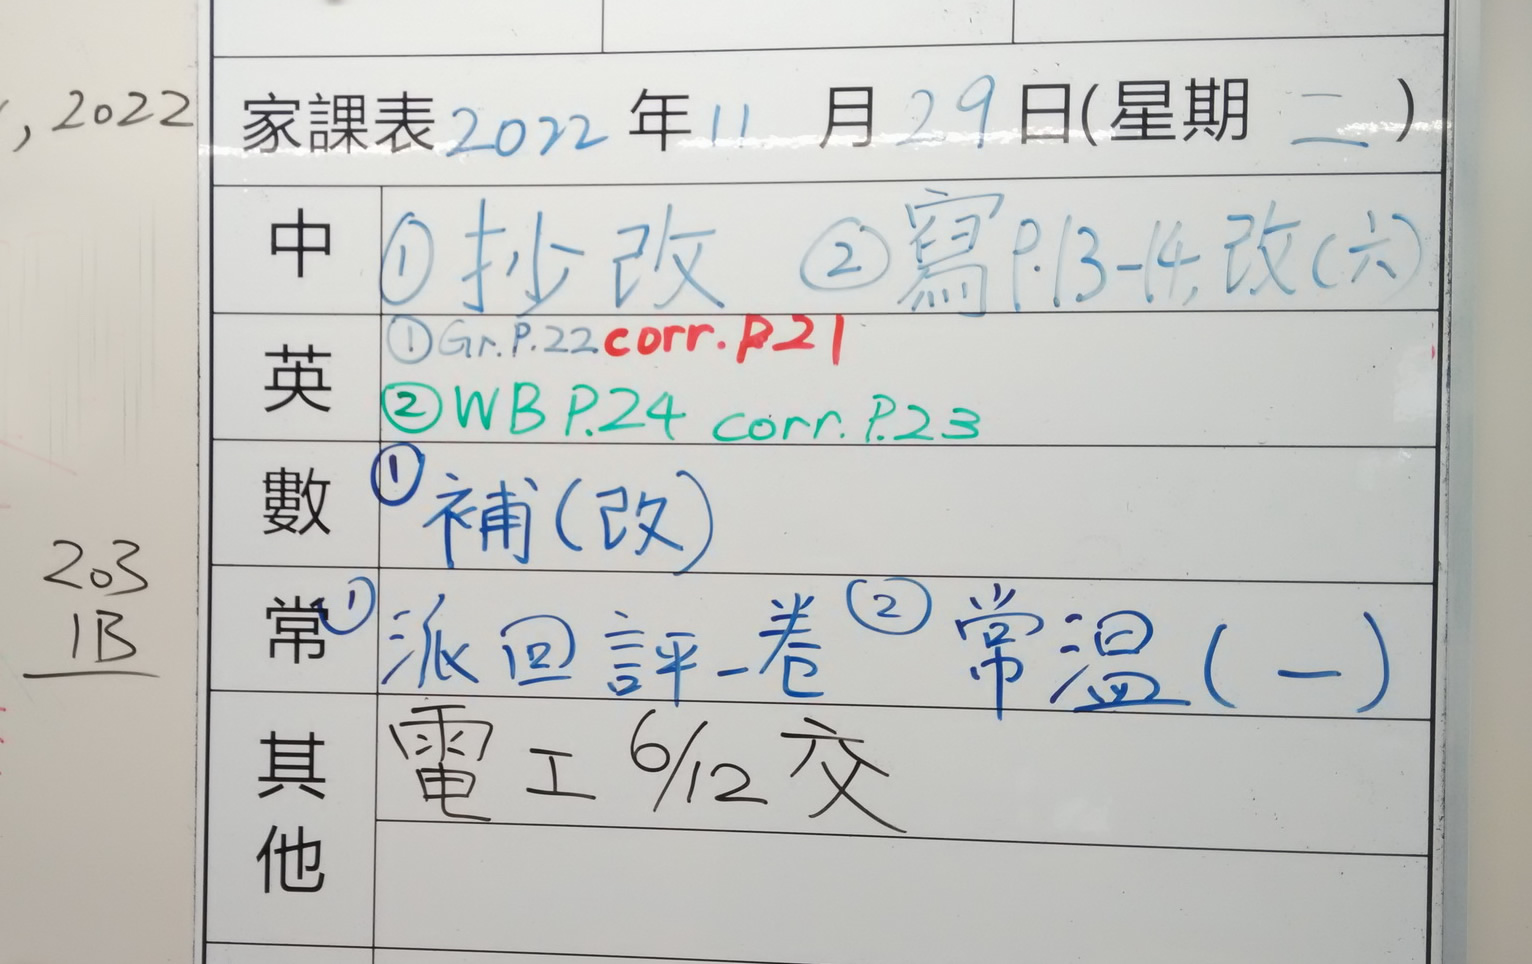 , 2022
家課表2022年11月29日(星期二)
中 ①抄改 ②寫P.13-14,改(六)
英 ①Gr.P.22 corr.P21
②WB P.24 corr.P.23
數 ①補(改)
常 ①派回評一卷 ②常溫(一)
203
1B
其他 電工 6/12 交